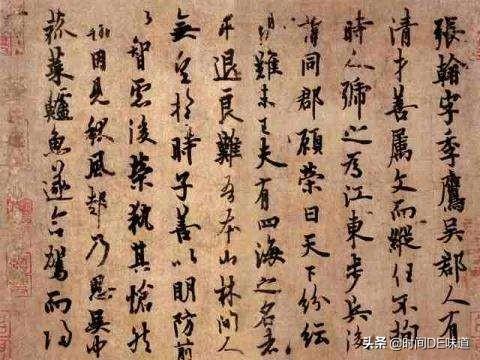 張翰字季鷹吳郡人有
清才善屬文而縱任不拘
時人號之為江東步兵後
謂同郡顧榮曰天下紛紜
難未已夫有四海之名者
求退良難吾本山林間人
無望於時子善以明防前
以智慮後榮執其愴然
翰因見秋風起乃思吳中
菰菜鱸魚遂命駕而歸
头条 @时间DE味道